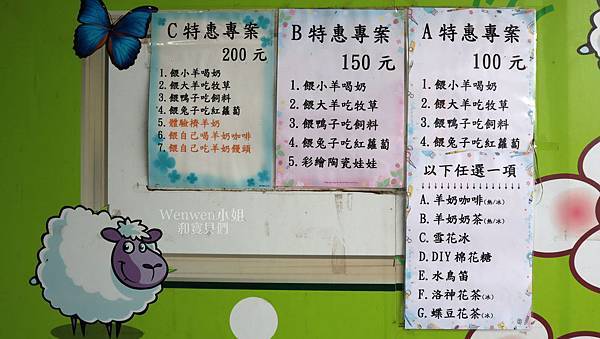 C 特惠專案
200 元
1. 餵小羊喝奶
2. 餵大羊吃牧草
3. 餵鴨子吃飼料
4. 餵兔子吃紅蘿蔔
5. 體驗擠羊奶
6. 餵自己喝羊奶咖啡
7. 餵自己吃羊奶饅頭
B 特惠專案
150 元
1. 餵小羊喝奶
2. 餵大羊吃牧草
3. 餵鴨子吃飼料
4. 餵兔子吃紅蘿蔔
5. 彩繪陶瓷娃娃
A 特惠專案
100 元
1. 餵小羊喝奶
2. 餵大羊吃牧草
3. 餵鴨子吃飼料
4. 餵兔子吃紅蘿蔔
以下任選一項
↓↓↓↓↓↓↓↓↓↓↓↓↓
A. 羊奶咖啡(熱/冰)
B. 羊奶奶茶(熱/冰)
C. 雪花冰
D. DIY 棉花糖
E. 水鳥笛
F. 洛神花茶(冰)
G. 蝶豆花茶(冰)
Wenwen小姐
和寶貝們